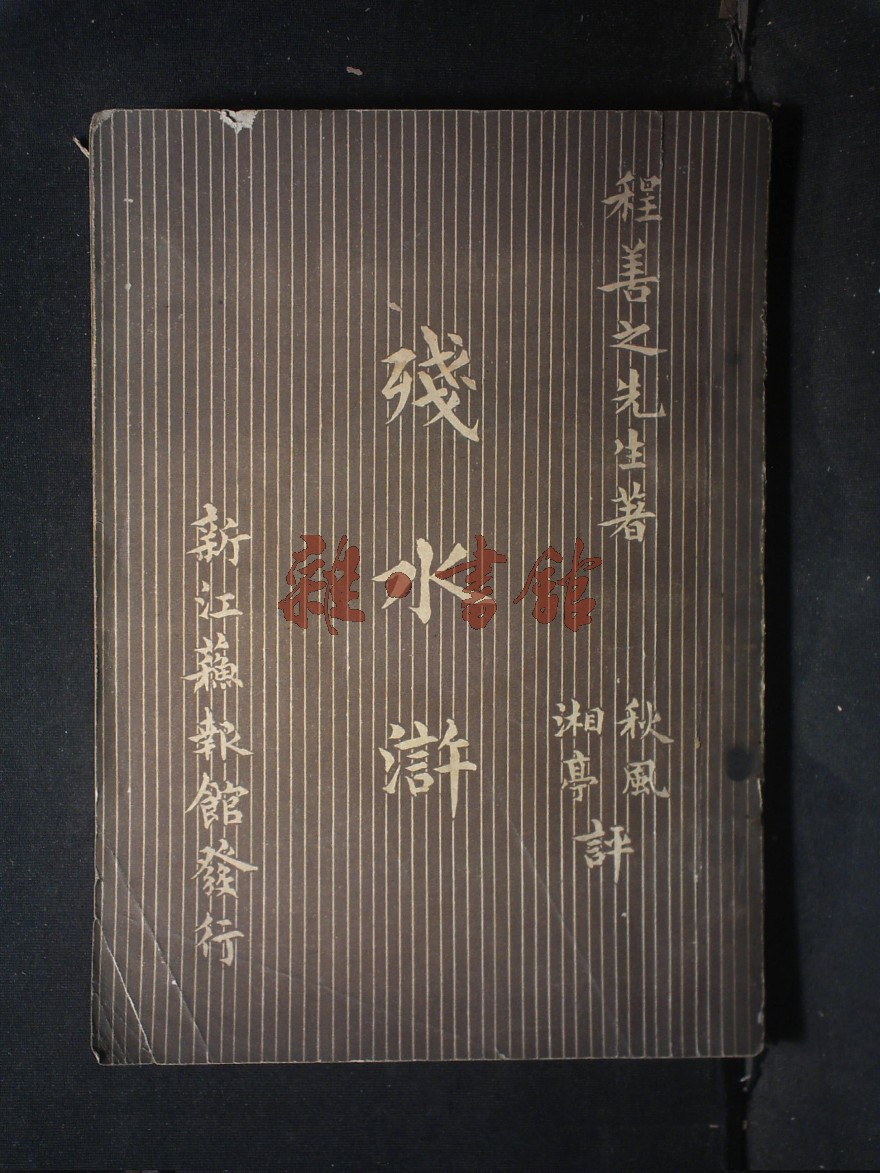 程善之先生著
秋風
湘亭
評
殘水滸
新江蘇報館發行
雜·書館